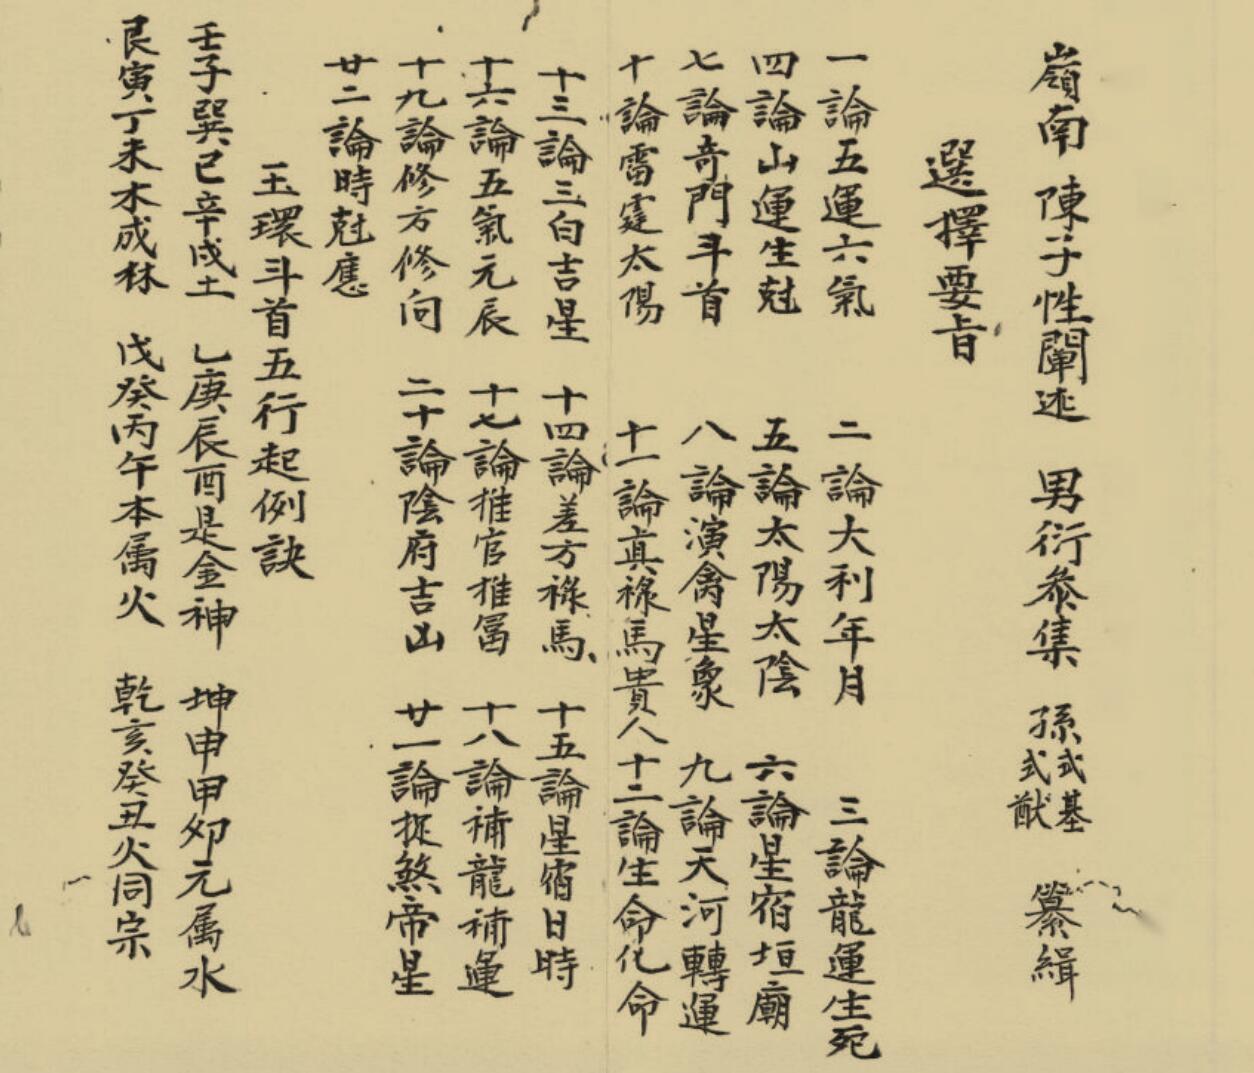 嶺南 陳子性闡述 男衍叅集 孫式基式猷 纂緝
選擇要旨
一論五運六氣 二論大利年月 三論龍運生死
四論山運生尅 五論太陽太陰 六論星宿垣廟
七論奇門斗首 八論演禽星象 九論天河轉運
十論雷霆太陽 十一論真祿馬貴人 十二論生命化命
十三論三白吉星 十四論差方祿馬 十五論星宿日時
十六論五氣元辰 十七論推官推冨 十八論補龍補運
十九論修方修向 二十論陰府吉凶 廿一論捉煞帝星
廿二論時尅應
玉環斗首五行起例訣
壬子巽巳辛戌土 乙庚辰酉是金神 坤申甲卯元属水
艮寅丁未木成林 戊癸丙午本属火 乾亥癸丑火同宗